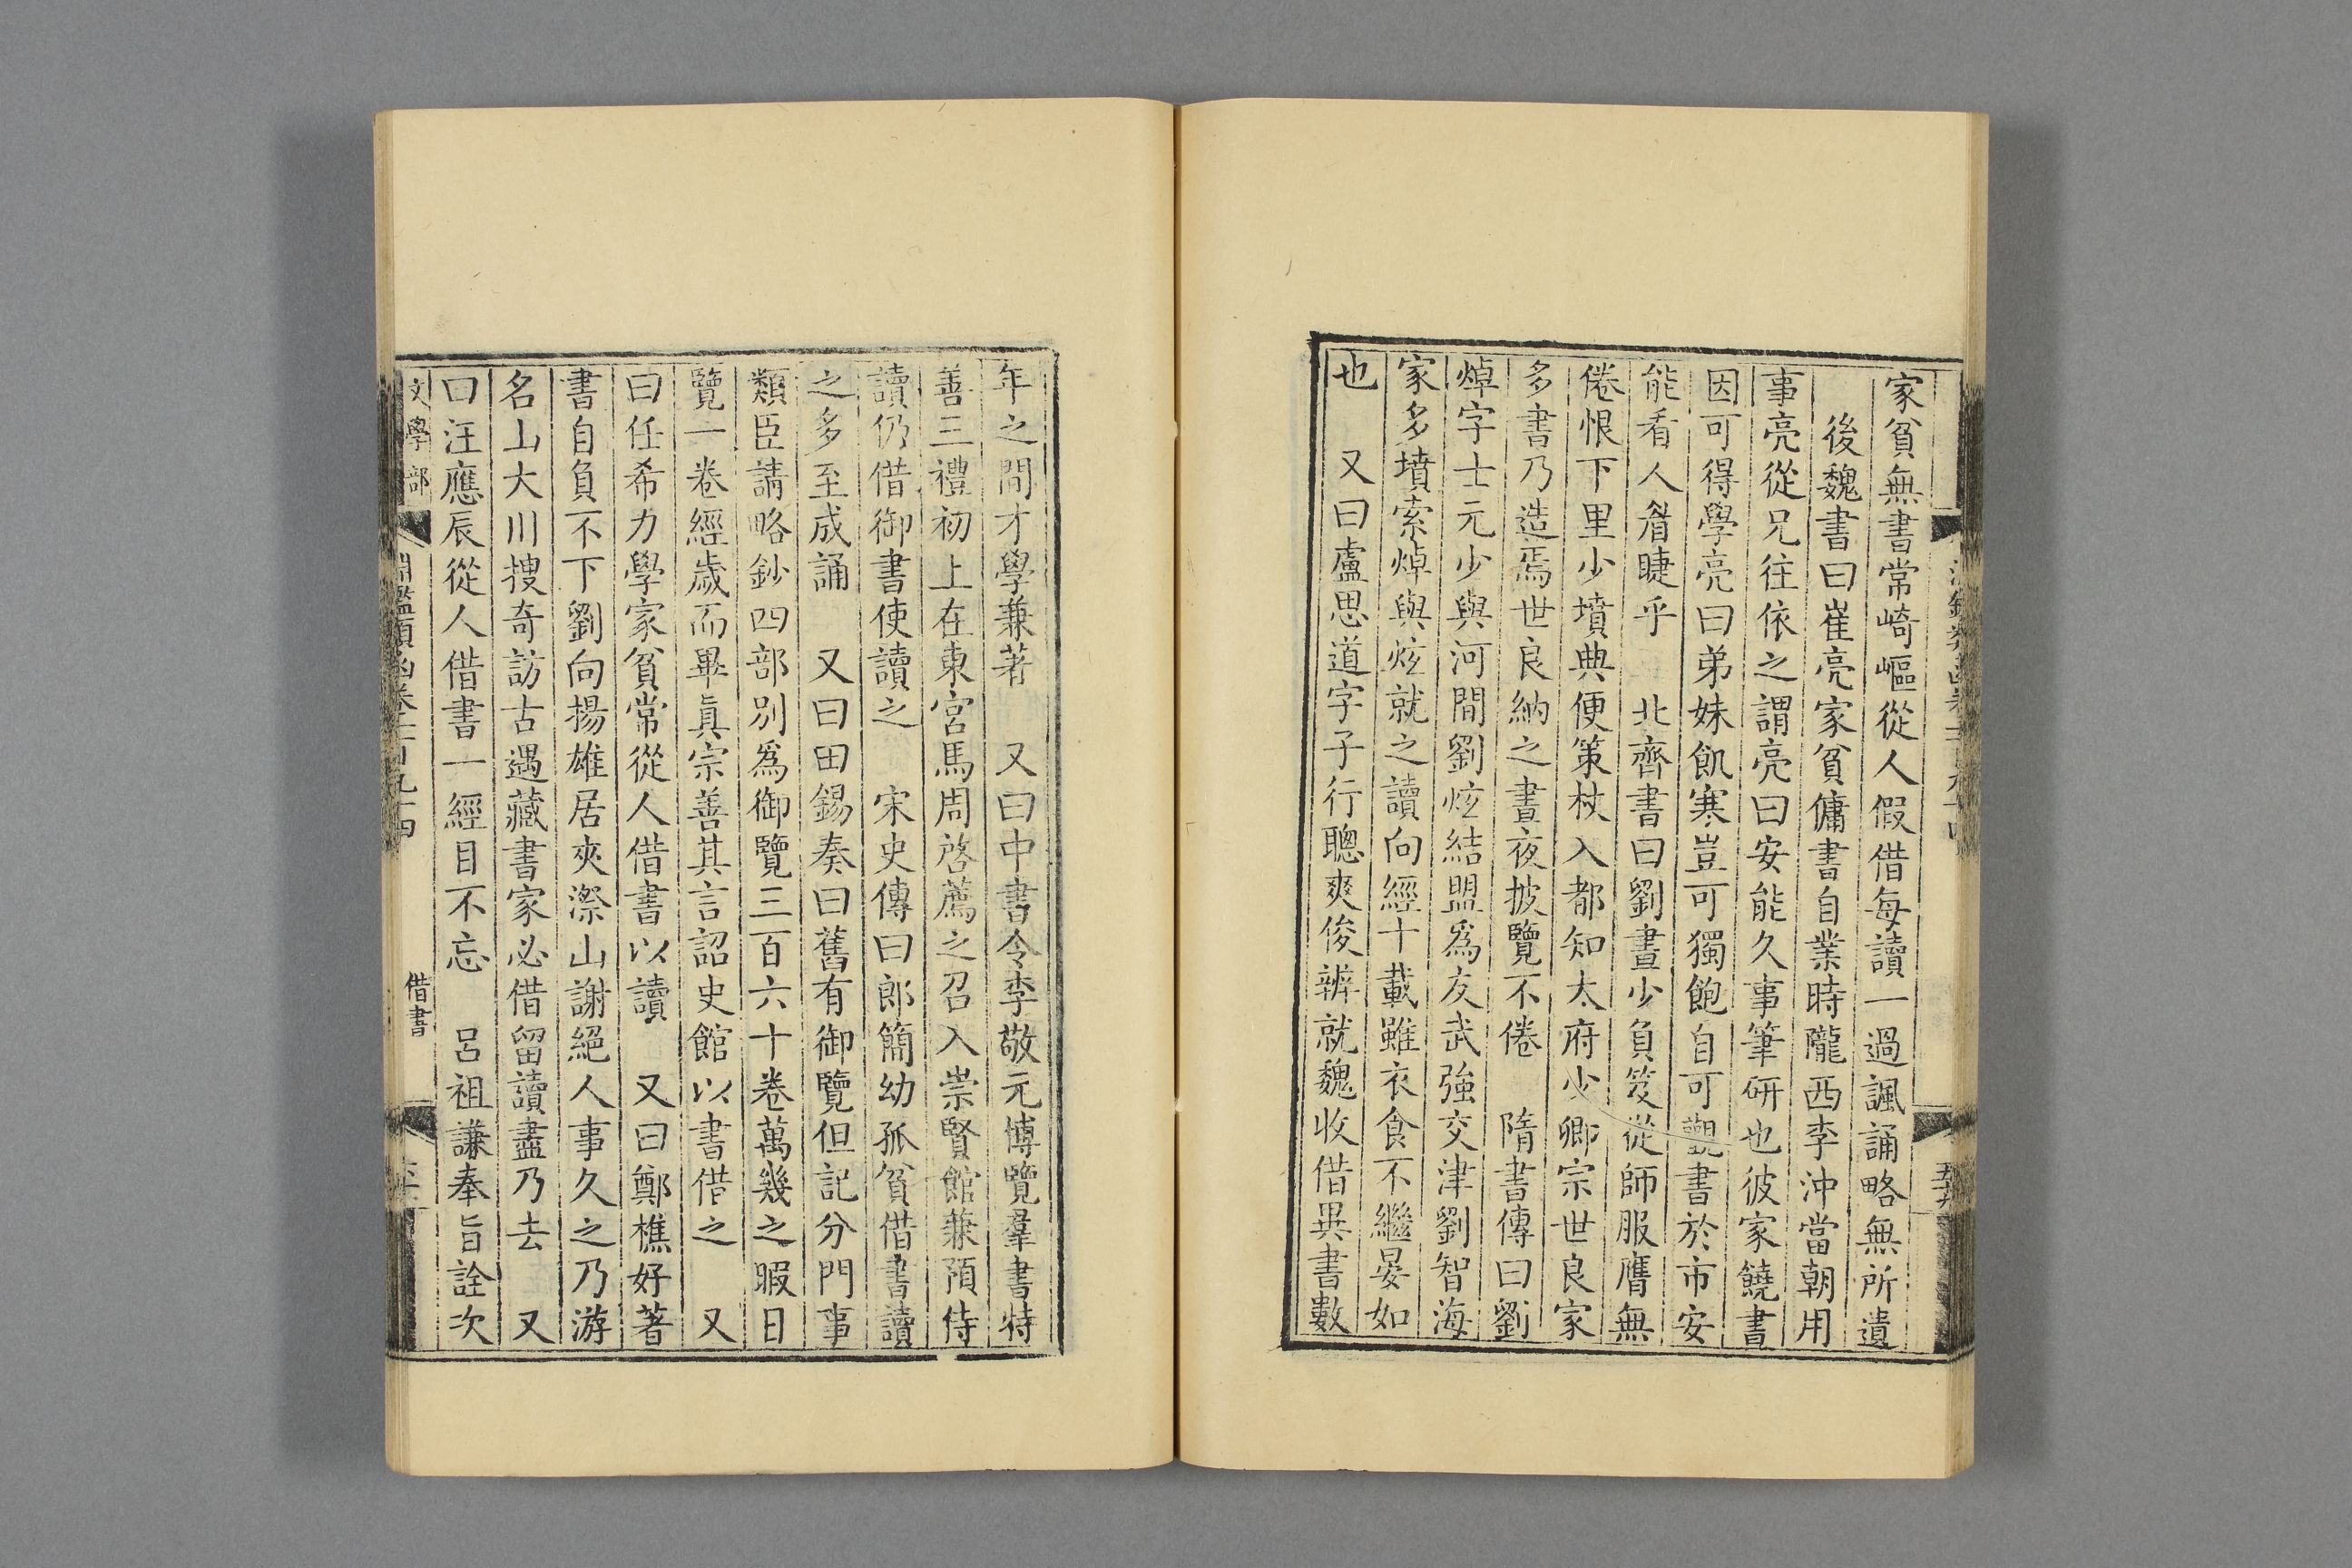 家貧無書常崎嶇從人假借每讀一過諷誦略無所遺
後魏書曰崔亮家貧傭書自業時隴西李沖當朝用
事亮從兄往依之謂亮曰安能久事筆研也彼家饒書
因可得學亮曰弟妹飢寒豈可獨飽自可觀書於市安
能看人眉睫乎　北齊書曰劉晝少負笈從師服膺無
倦恨下里少墳典便策杖入都知太府少卿宗世良家
多書乃造焉世良納之晝夜披覽不倦　隋書傳曰劉
焯字士元少與河間劉炫結盟爲友武強交津劉智海
家多墳索焯與炫就之讀向經十載雖衣食不繼晏如
也　又曰盧思道字子行聰爽俊辨就魏收借異書數
年之間才學兼著　又曰中書令李敬元博覽羣書特
善三禮初上在東宮馬周啓薦之召入崇賢館兼預侍
讀仍借御書使讀之　宋史傳曰郎簡幼孤貧借書讀
之多至成誦　又曰田錫奏曰舊有御覽但記分門事
類臣請略鈔四部別爲御覽三百六十卷萬幾之暇日
覽一卷經歲而畢眞宗善其言詔史館以書借之　又
曰任希力學家貧常從人借書以讀　又曰鄭樵好著
書自負不下劉向揚雄居夾漈山謝絕人事久之乃游
名山大川搜奇訪古遇藏書家必借留讀盡乃去　又
曰汪應辰從人借書一經目不忘　呂祖謙奉旨詮次
文學部　淵鑑類函卷二百九十四　借書